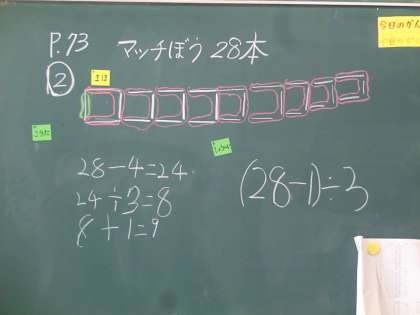 P.73 マッチぼう 28本
②
28－4＝24
24÷3＝8
8＋1＝9
(28－1)÷3